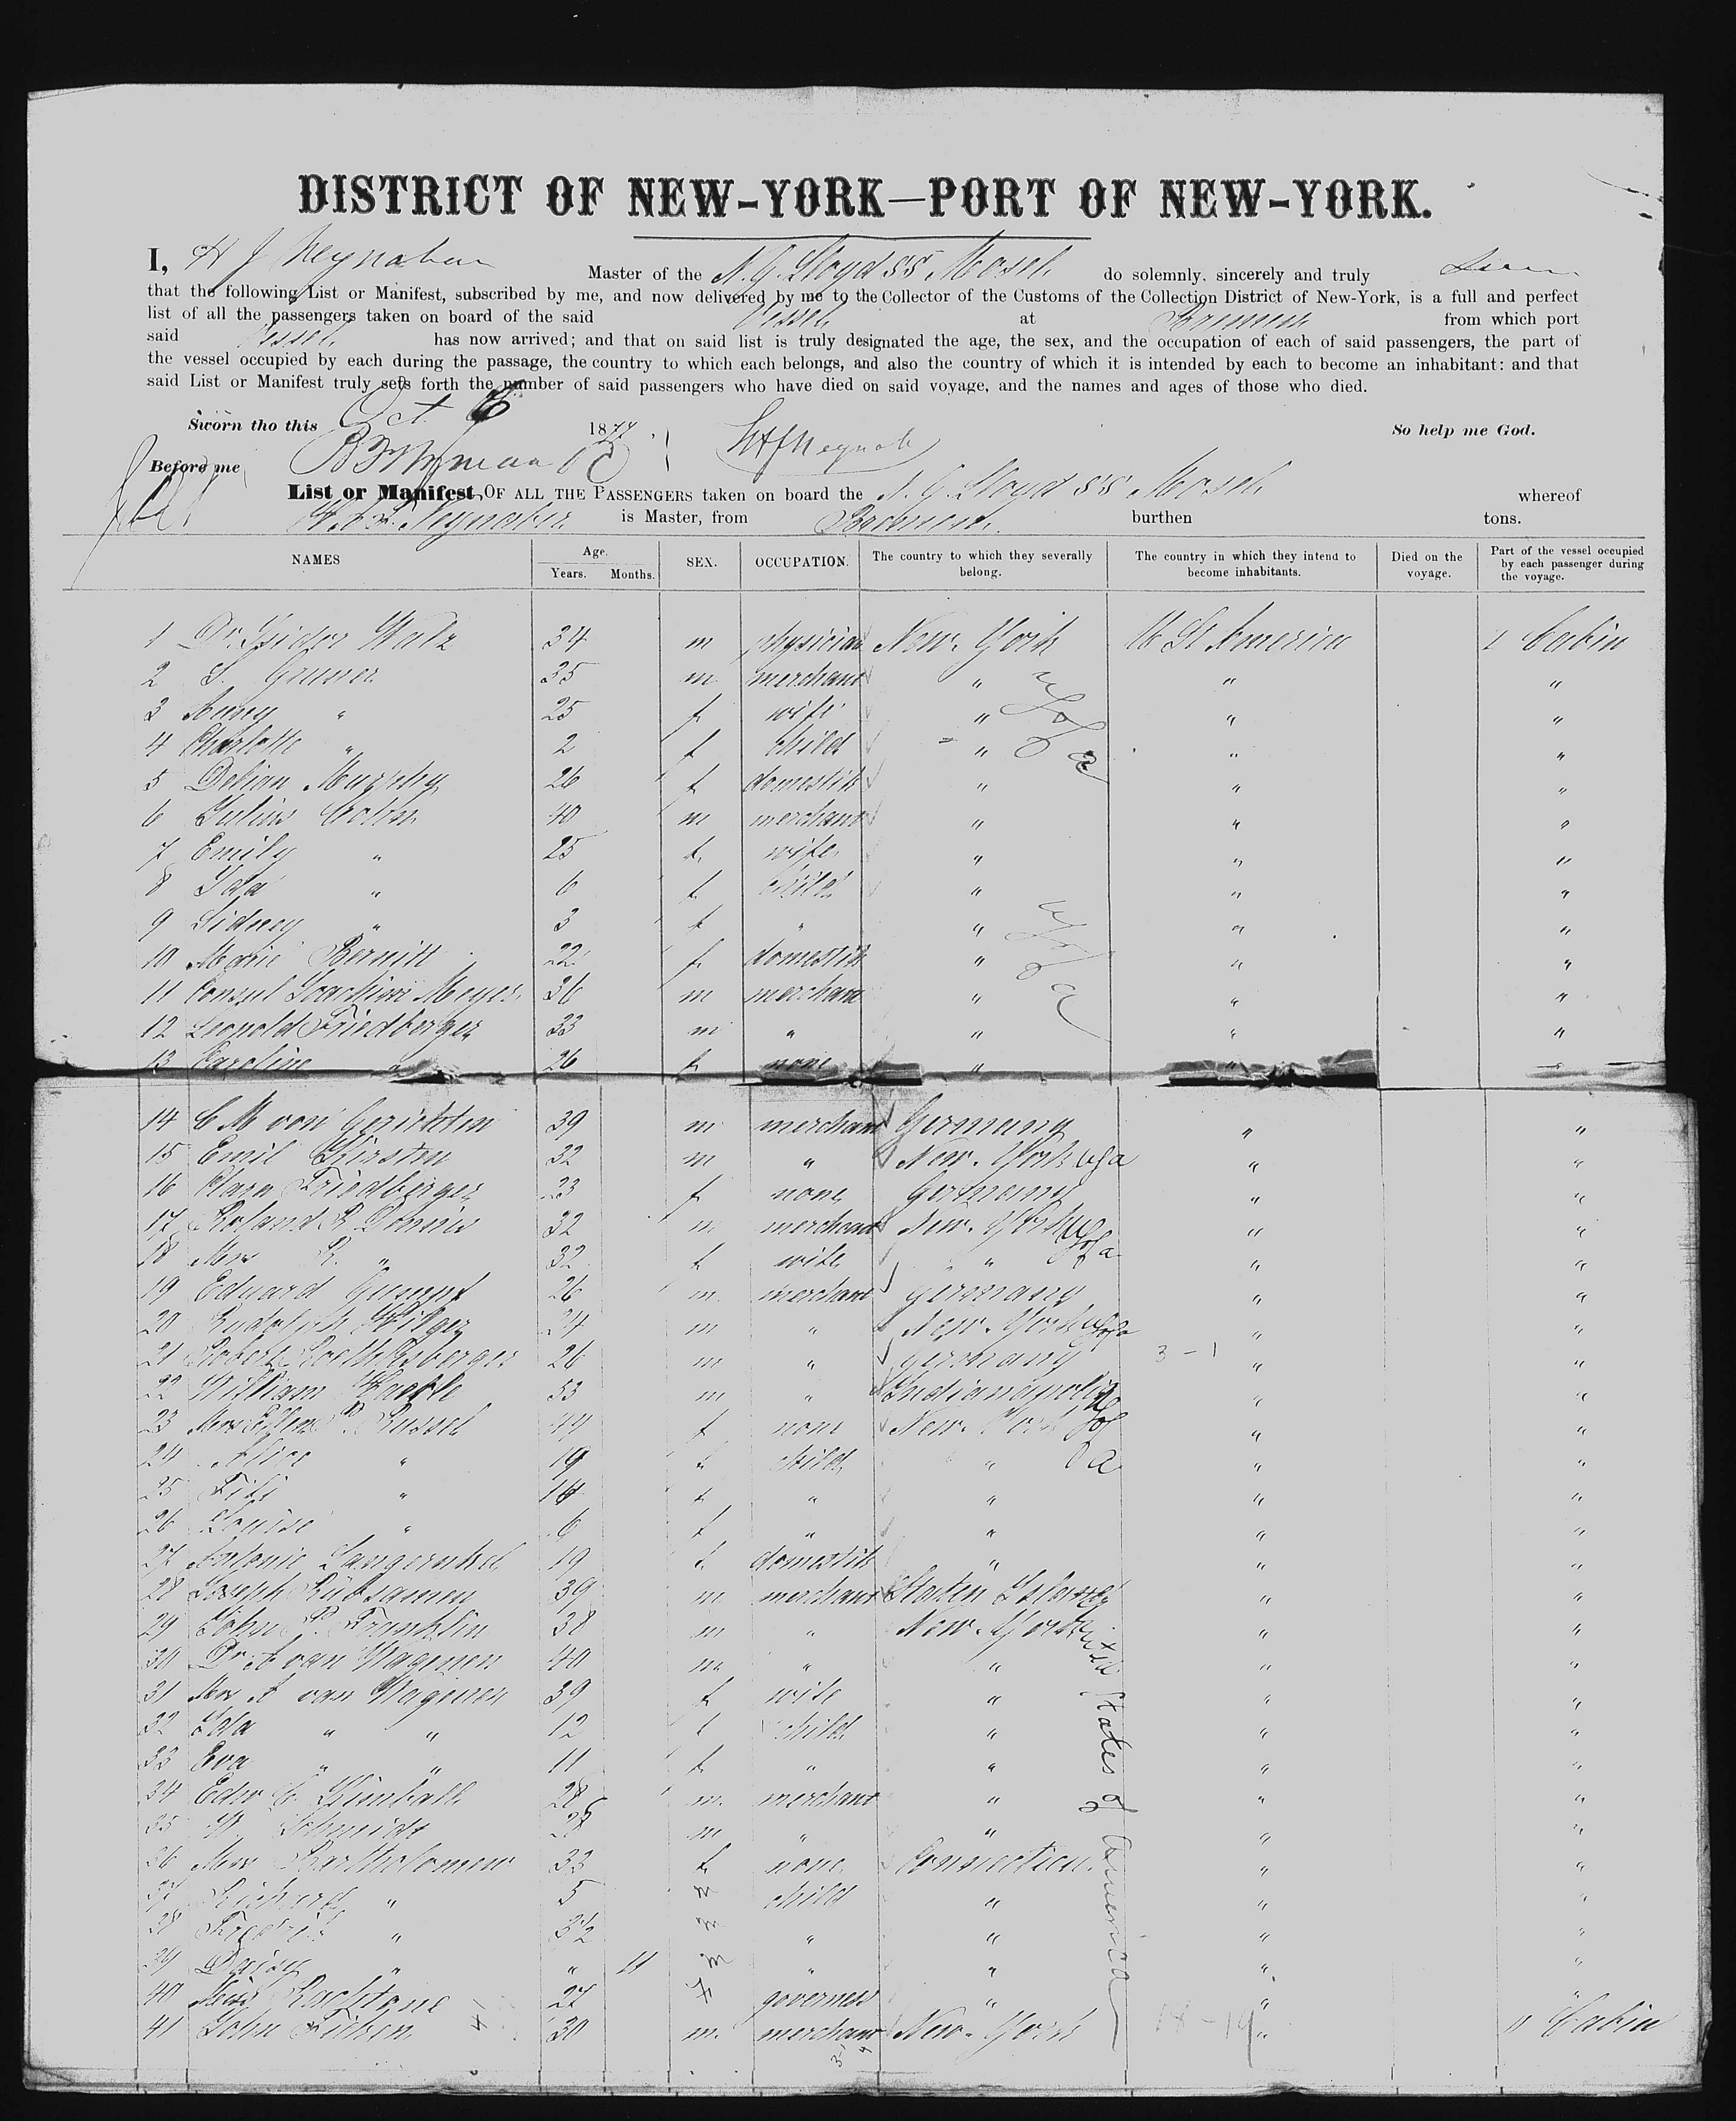 DISTRICT OF NEW-YORK—PORT OF NEW-YORK.
I, H J Neynaber Master of the N. G. Lloyd SS Mosel do solemnly, sincerely and truly
that the following List or Manifest, subscribed by me, and now delivered by me to the Collector of the Customs of the Collection District of New-York, is a full and perfect
list of all the passengers taken on board of the said Vessel at Bremen from which port
said Vessel has now arrived; and that on said list is truly designated the age, the sex, and the occupation of each of said passengers, the part of
the vessel occupied by each during the passage, the country to which each belongs, and also the country of which it is intended by each to become an inhabitant: and that
said List or Manifest truly sets forth the number of said passengers who have died on said voyage, and the names and ages of those who died.
Sworn tho this Oct 6 1877 So help me God.
Before me
List or Manifest OF ALL THE PASSENGERS taken on board the N. G. Lloyd SS Mosel whereof
Neynaber is Master, from Bremen burthen tons.
NAMES Age. Years. Months. SEX. OCCUPATION. The country to which they severally belong. The country in which they intend to become inhabitants. Died on the voyage. Part of the vessel occupied by each passenger during the voyage.
1 Dr. Isidor Walz 34 m physician New York U St America 1 Cabin
2 S. Gruner 35 m merchant " " "
3 " 25 f wife " " "
4 Charlotte " 2 f child " " "
5 Murphy 26 f domestik " " "
6 Julius 40 m merchant " " "
7 Emily " 25 f wife " " "
8 Ida " 6 f child " " "
9 Sidney " 3 f " " " "
10 Marie 22 f domestik " " "
11 Consul Joachim Meyer 36 m merchant " " "
12 Leopold Friedberger 33 m " " " "
13 Caroline " 26 f none " " "
14 C M von Gerichten 39 m merchant Germany " "
15 Emil Kirsten 32 m " New York U S a " "
16 Clara Friedberger 23 f none Germany " "
17 Roland R 32 m merchant New York " "
18 Mrs R. " 32 f wife " " "
19 Eduard 26 m merchant Germany " "
20 Rudolph Hilger 24 m " New York " "
21 Robert 26 m " Germany 3-1 " "
22 William 53 m " Indianapolis " "
23 Mrs Ellen P. Russel 44 f none New York " "
24 Alice " 19 f child " " "
25 Fifi " 14 f " " " "
26 Louise " 6 f " " " "
27 Antonie 19 f domestik " " "
28 Joseph Rübsamen 39 m merchant Staten Island " "
29 John P. Franklin 38 m " New York " "
30 Dr A van Wagenen 40 m " " " "
31 Mrs A van Wagenen 39 f wife " " "
32 Ida " " 12 f child " " "
33 Eva " " 11 f " " " "
34 Edw C. Kimball 28 m merchant " " "
35 W. Schmidt 28 m " " " "
36 Mrs Bartholomew 33 f none Connecticut " "
37 Richard " 5 m child " " "
38 " 3 1/2 m " " " "
39 Daisy " " 11 " " " "
40 Miss 27 f governess " " "
41 John 30 m merchant New York " " Cabin
United States of America